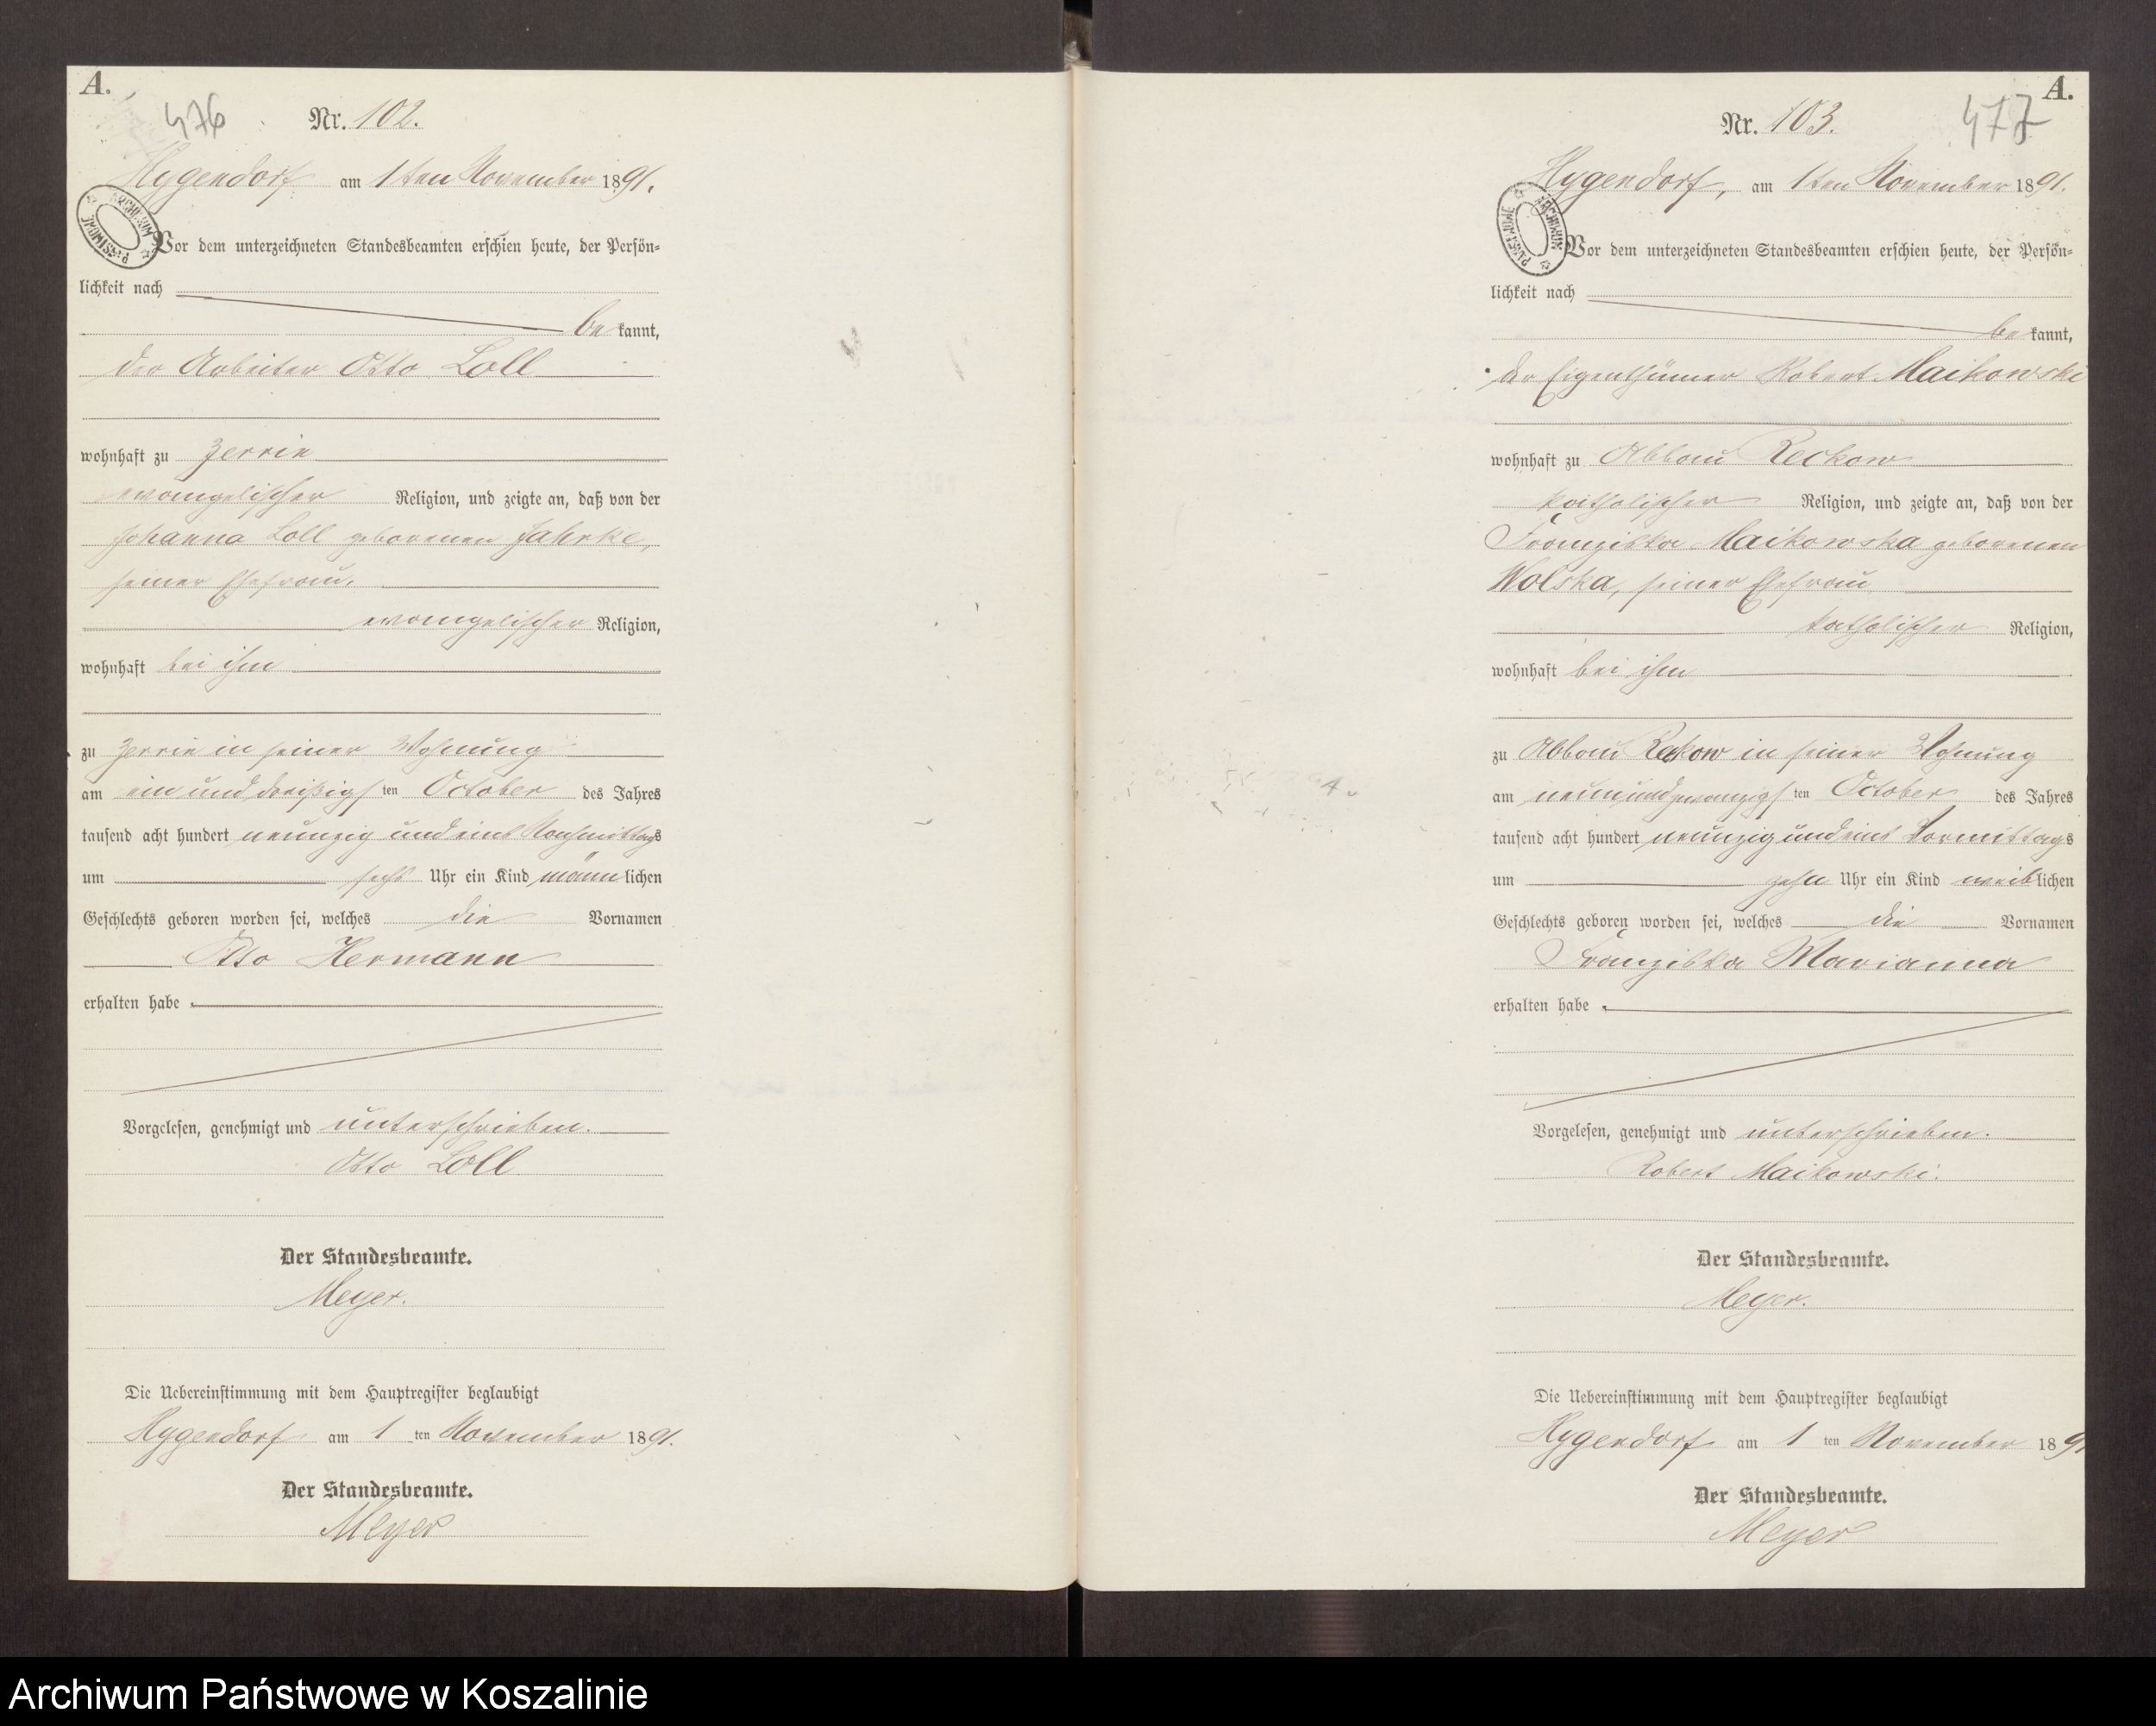 A.
476
Nr. 102.
Hygendorf am 1ten November 1891.
Vor dem unterzeichneten Standesbeamten erschien heute, der Persön-
lichkeit nach
be kannt,
der Arbeiter Otto Loll
wohnhaft zu Zerrin
evangelischer Religion, und zeigte an, daß von der
Johanna Loll geborenen Jahnke,
seiner Ehefrau,
evangelischer Religion,
wohnhaft bei ihm
zu Zerrin in seiner Wohnung
am ein und dreißigsten October des Jahres
tausend acht hundert neunzig und eins Nachmittags
um sechs Uhr ein Kind männlichen
Geschlechts geboren worden sei, welches die Vornamen
Otto Hermann
erhalten habe.
Vorgelesen, genehmigt und unterschrieben.
Otto Loll
Der Standesbeamte.
Meyer.
Die Uebereinstimmung mit dem Hauptregister beglaubigt
Hygendorf am 1 ten November 1891.
Der Standesbeamte.
Meyer
ARCHIWUM PAŃSTWOWE
A.
477
Nr. 103.
Hygendorf, am 1ten November 1891.
Vor dem unterzeichneten Standesbeamten erschien heute, der Persön-
lichkeit nach
be kannt,
der Eigenthümer Robert Maikowski
wohnhaft zu Abbau Reckow
katholischer Religion, und zeigte an, daß von der
Franziska Maikowska geborenen
Wolska, seiner Ehefrau
katholischer Religion,
wohnhaft bei ihm
zu Abbau Reckow in seiner Wohnung
am neunundzwanzigsten October des Jahres
tausend acht hundert neunzig und eins Vormittags
um zehn Uhr ein Kind weiblichen
Geschlechts geboren worden sei, welches die Vornamen
Franziska Marianna
erhalten habe.
Vorgelesen, genehmigt und unterschrieben.
Robert Maikowski.
Der Standesbeamte.
Meyer.
Die Uebereinstimmung mit dem Hauptregister beglaubigt
Hygendorf am 1 ten November 1891
Der Standesbeamte.
Meyer
ARCHIWUM PAŃSTWOWE
Archiwum Państwowe w Koszalinie